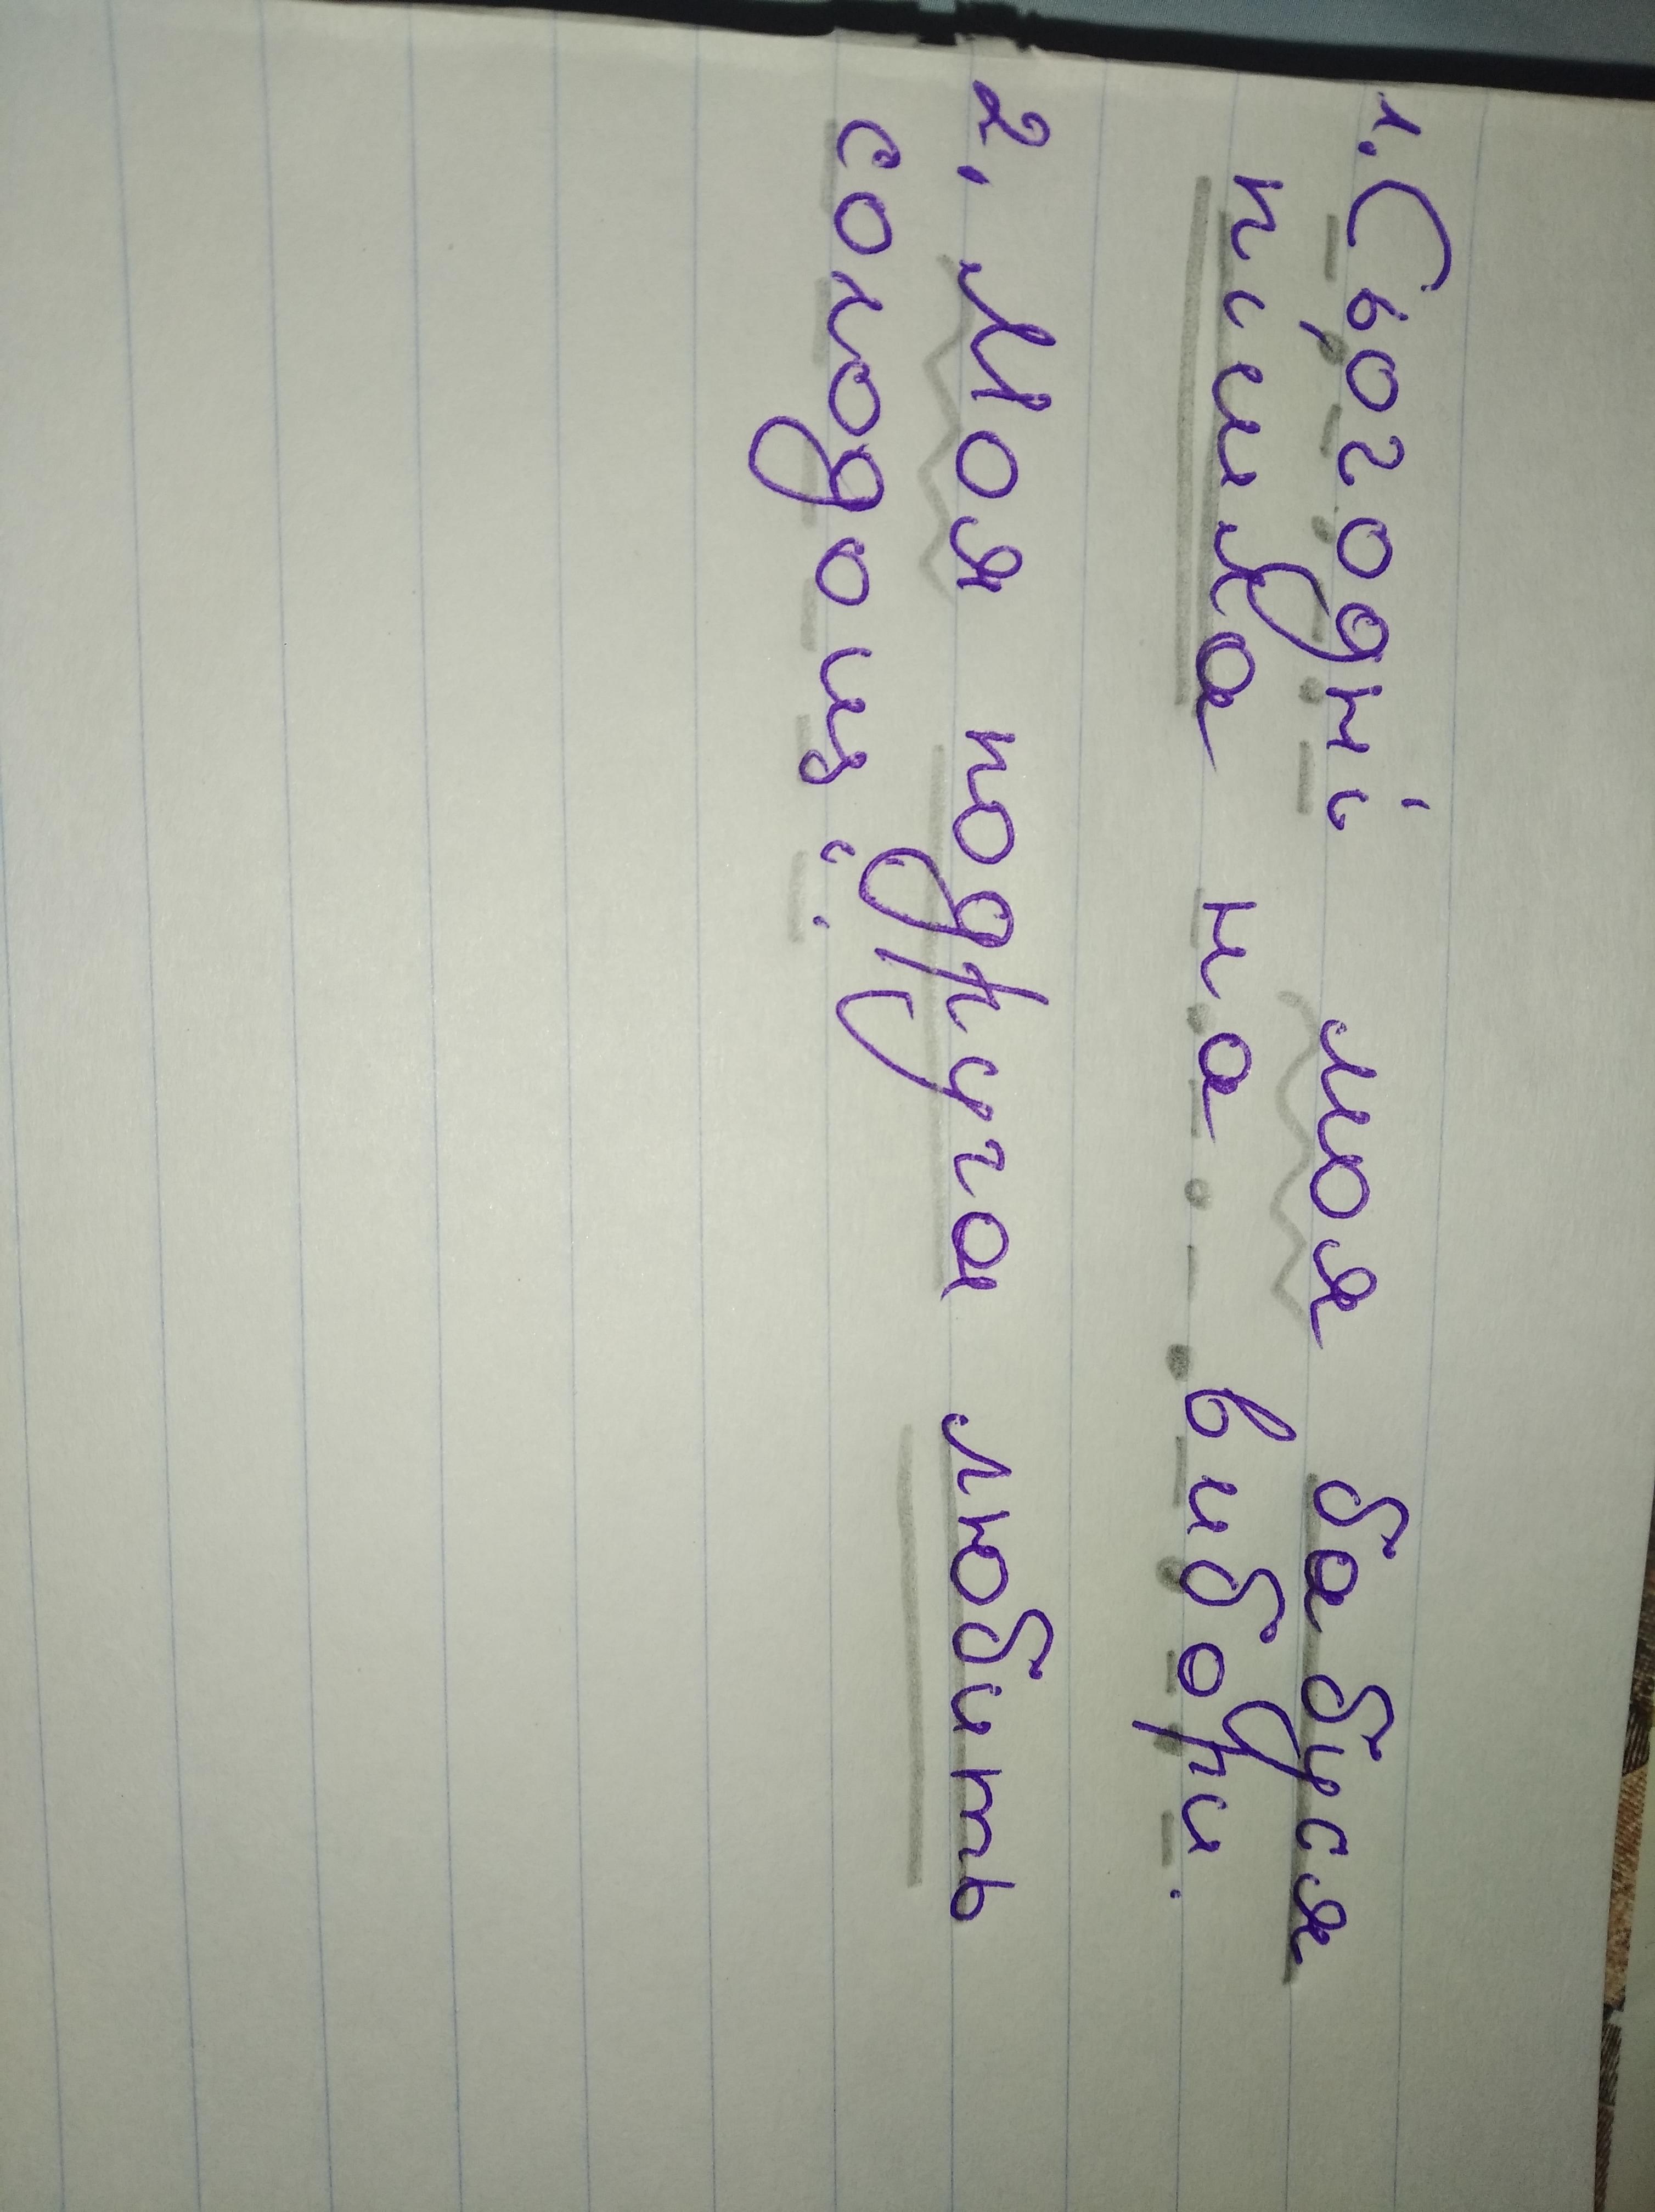 1. Сьогодні моя бабуся
пішла на вибори.
2. Моя подруга любить
солодощі.